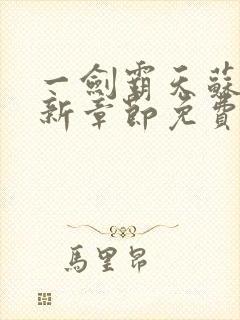 一劍霸天蘇
新章節免費
馬里昂